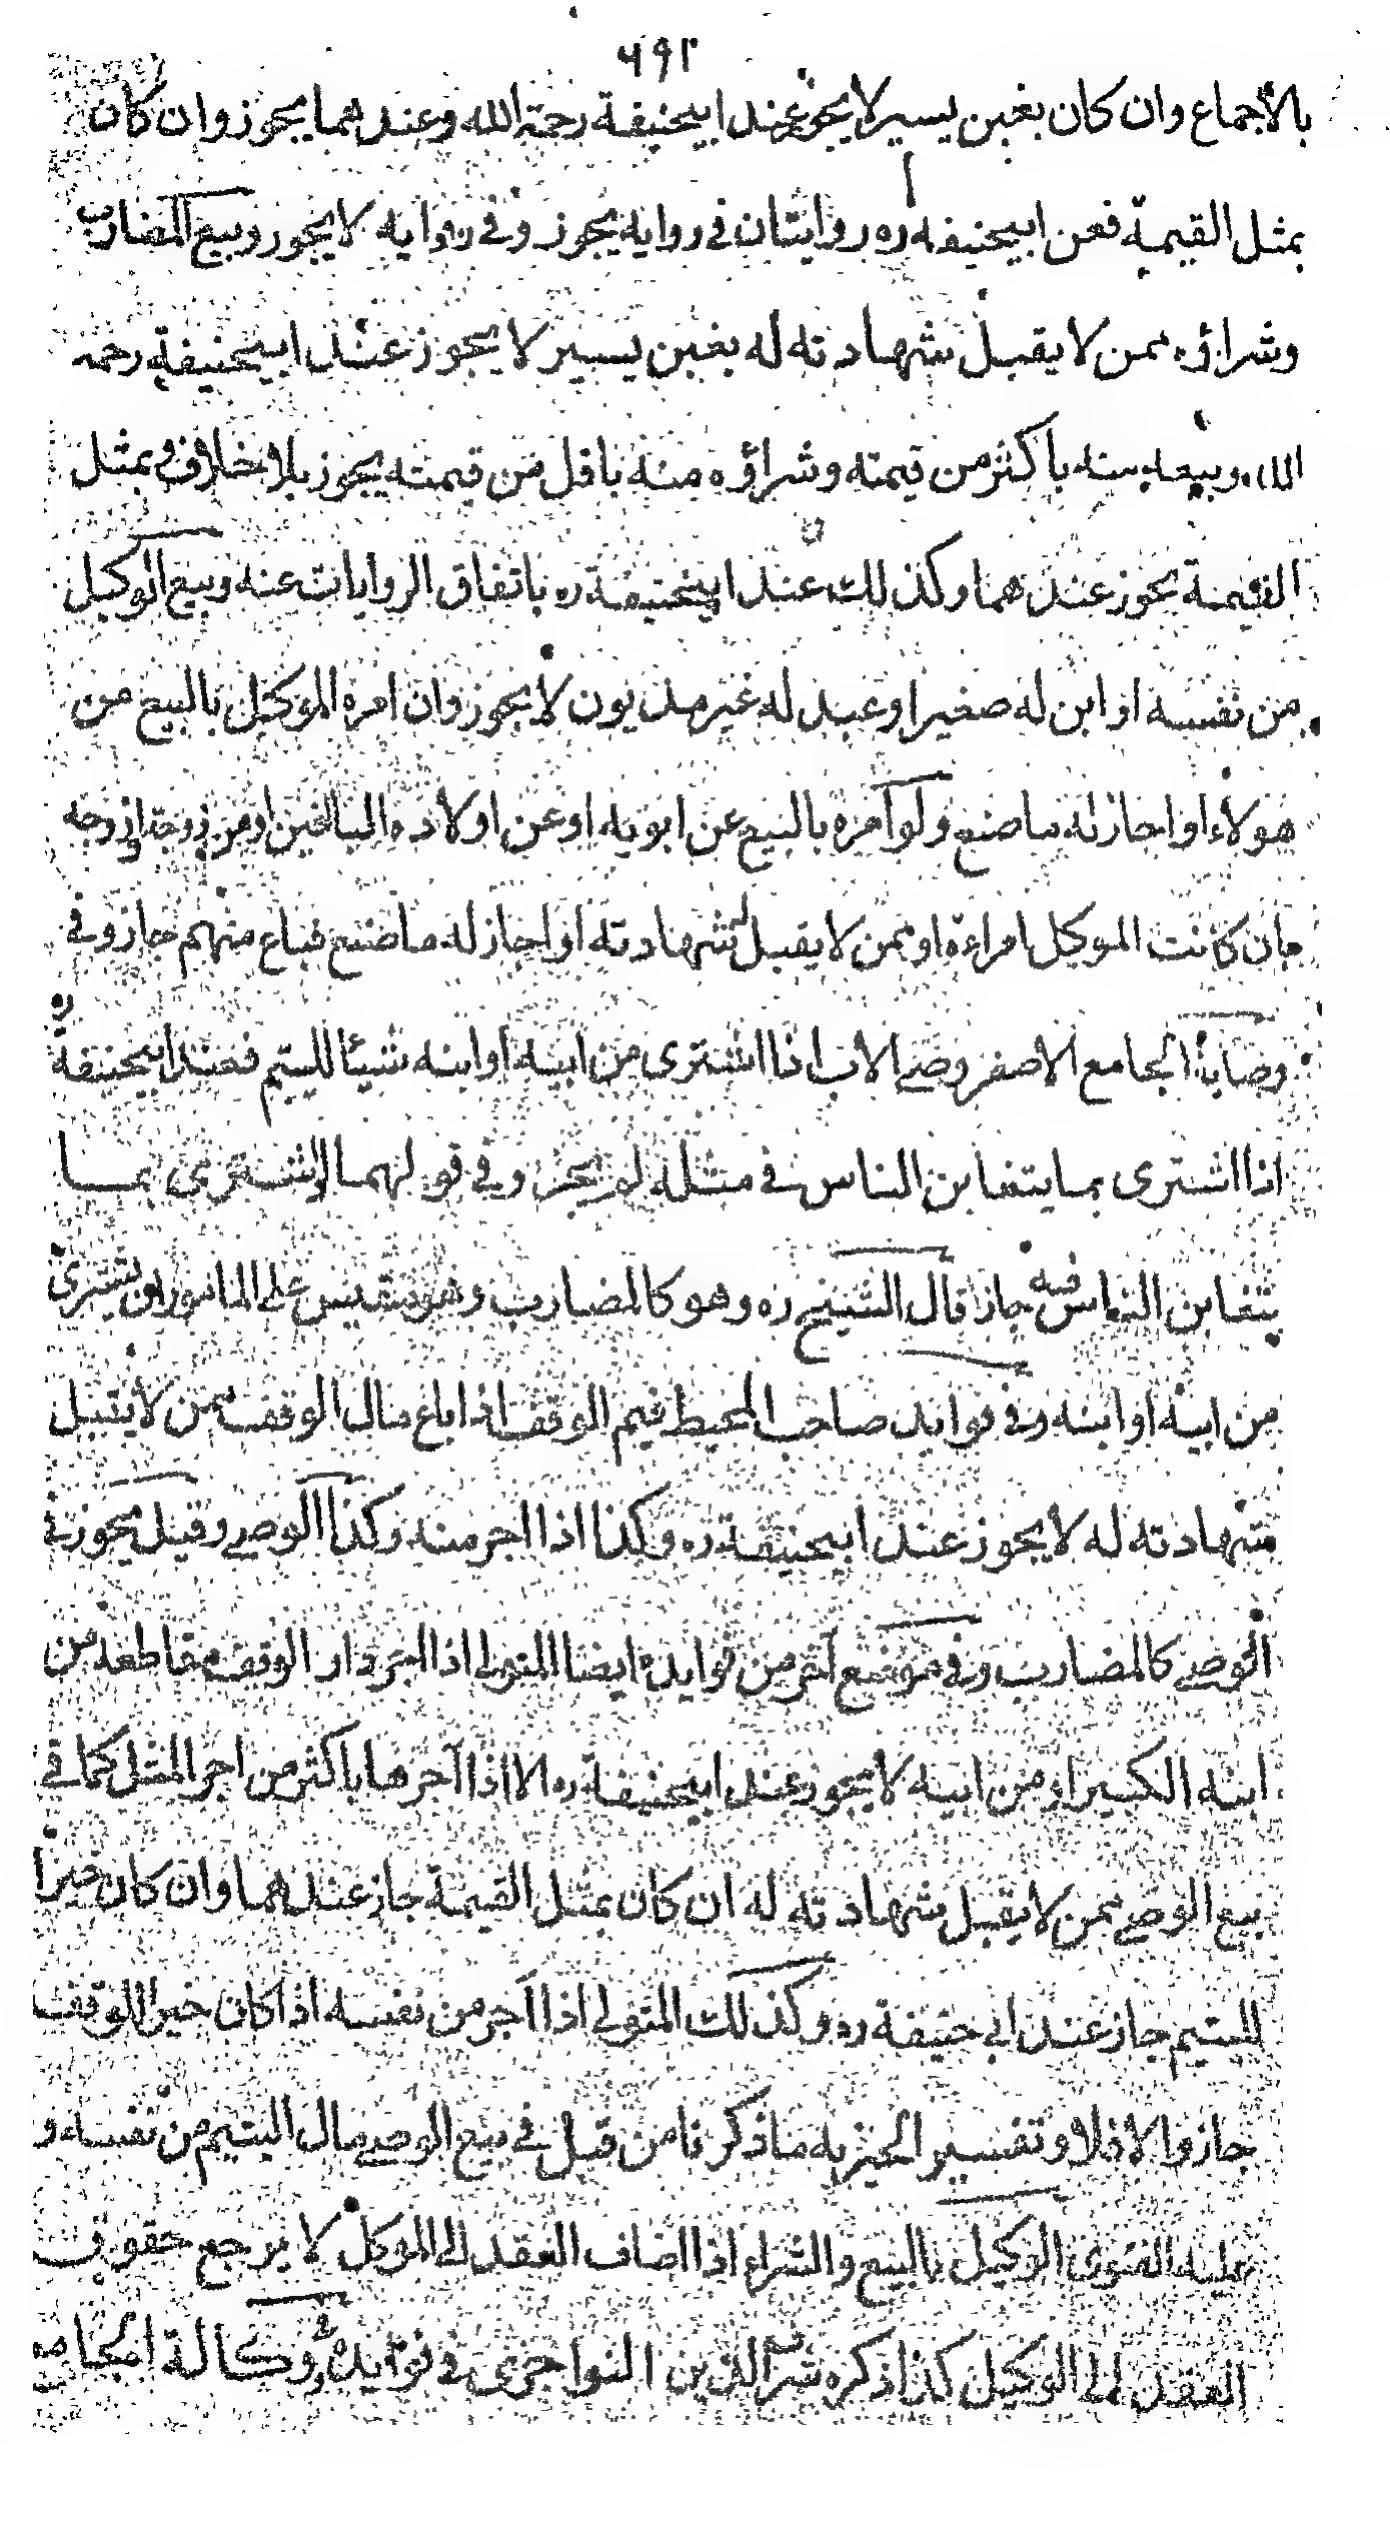 ٦٩٢
بالأجماع وان كان بغبن يسير لا يجوز عند ابيحنيفة رحمة الله وعند هما يجوز وان كان
بمثل القيمة فعن ابيحنيفه ره روايتان في رواية يجوز وفي رواية لا يجوز وبيع المضارب
وشراؤه ممن لا يقبل شهادته له بغبن يسير لا يجوز عند ابيحنيفة رحمه
الله وبيعه منه باكثر من قيمته وشراؤه منه باقل من قيمته يجوز بلا خلاف وبمثل
القيمة يجوز عند هما وكذلك عند ابيحنيفة ره باتفاق الروايات عنه وبيع الوكيل
من نفسه او ابن له صغير او عبد له غير مديون لا يجوز وان امره الموكل بالبيع من
هولاء او اجاز له ما صنع ولو امره بالبيع عن ابويه او عن اولاده البالغين او من زوجته او زوجه
بان كانت الموكل امراءة او ممن لا يقبل شهادته او اجاز له ما صنع فباع منهم جاز وفي
وصايا الجامع الاصغر وصي الاب اذا اشترى من ابيه او ابنه شيئا لليتيم فعند ابيحنيفة ره
اذا اشترى بما يتغابن الناس في مثله لم يجز وفي قولهما لو اشترى بما
يتغابن الناس فيه جاز قال الشيخ ره وهو كالمضارب وهو مقيس على المامور ان يشترى
من ابيه او ابنه وفي فوايد صاحب المحيط قيم الوقف اذا باع مال الوقف ممن لا يقبل
شهادته له لا يجوز عند ابيحنيفة ره وكذا اذا اجر منه وكذا الوصي وقيل يجوز في
الوصي كالمضارب وفي موضع آخر من فوايده ايضا المتولي اذا اجر دار الوقف مقاطعه من
ابنه الكبير او من ابيه لا يجوز عند ابيحنيفة ره الا اذا آجرها باكثر من اجر المثل كما في
بيع الوصي ممن لا يقبل شهادته له ان كان بمثل القيمة جاز عند هما وان كان خيرا
لليتيم جاز عند ابي حنيفة ره وكذلك المتولي اذا آجر من نفسه اذا كان خيرا للوقف
جاز والا فلا وتفسير الخيرية ما ذكرنا من قبل في بيع الوصي مال اليتيم من نفسه و
عليه الفتوى الوكيل بالبيع والشراء اذا اضاف العقد الى الموكل لا يرجع حقوق
العقد الى الوكيل كذا ذكره شرف الدين النواجزى في فوايده وفي وكالة الجامع